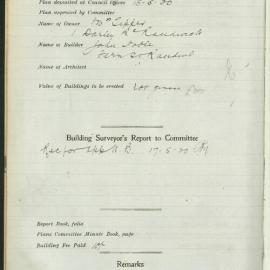 Plan deposited at Council Offices 15-5-20
Plan approved by Committee
Name of Owner Mr Tipper
1 Darley Rd Randwick
Name of Builder John Noble
Fern St Randwick
Name of Architect
Value of Buildings to be erected not given
Building Surveyor's Report to Committee
Rec for app 17-5-20
Report Book, folio
Plans Committee Minute Book, page
Building Fee Paid
Remarks